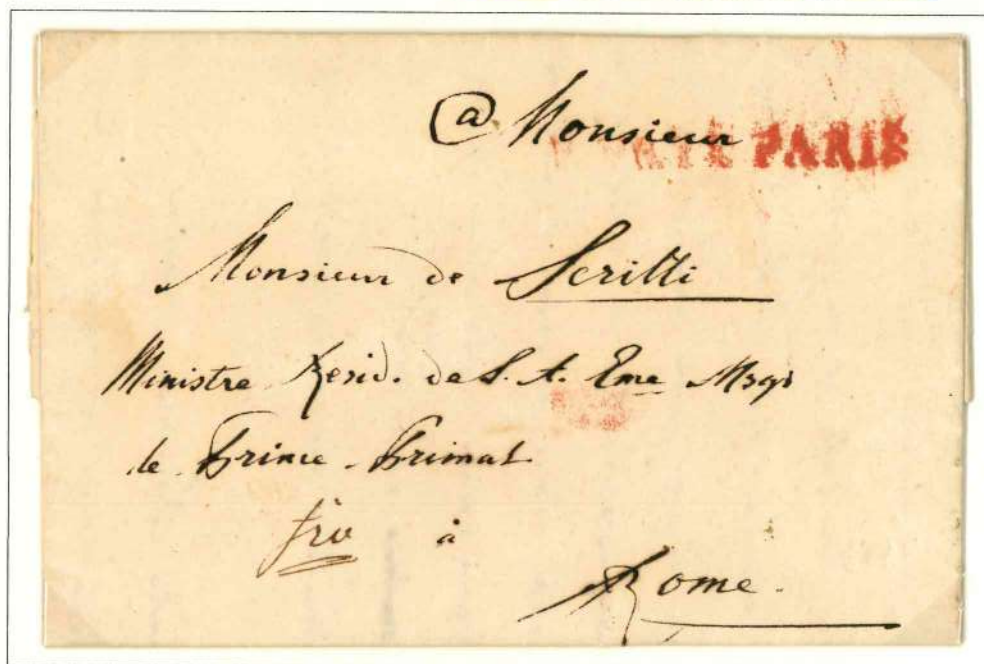 @ Monsieur
PARIS
Monsieur de Scritti
Ministre Resid. de S. A. Eme Msgr
le Prince-Primat
fro à
Rome.